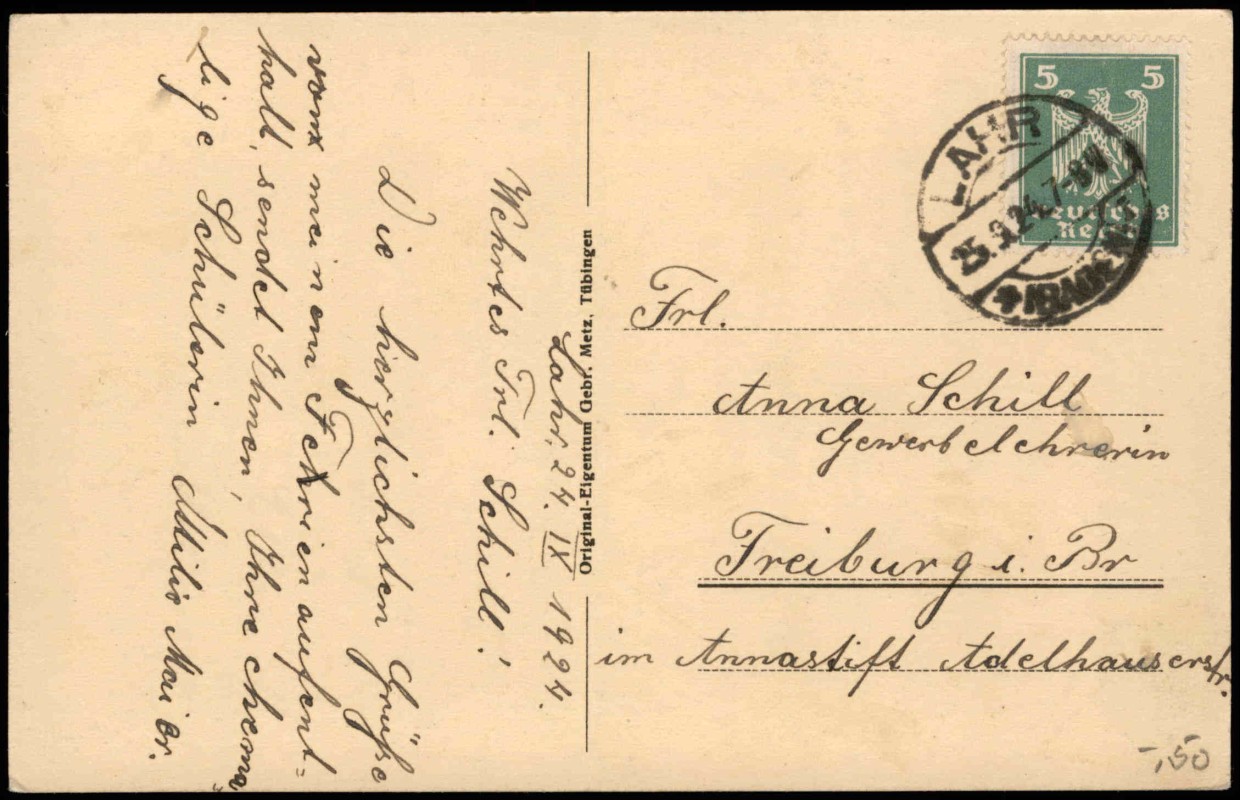 Lahr, 24. IX 1924.
Wehrtes Frl. Schill!
Die herzlichsten Grüsse
vonx meinem Fexrienaufent-
halt, sendet Ihnen, Ihre ehema-
lige Schülerin
Maier.
Original-Eigentum Gebr. Metz, Tübingen
5 5
Deutsches
Reich
LAHR
25.9.24.7-8N
*(BADEN)*
Frl.
Anna Schill
Gewerbelehrerin
Freiburg i. Br
im Annastift Adelhauserstr.
-,50